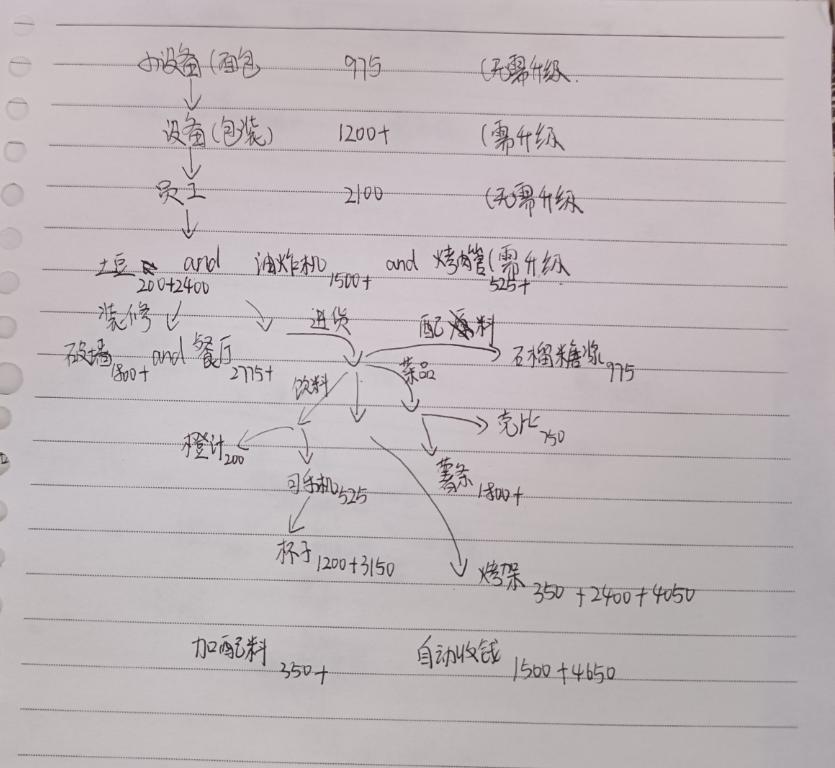 小设备(面包 975 (无需升级.
设备(包装) 1200+ (需升级
员工 2100 (无需升级
土豆 and 油炸机 1500+ and 烤肉管(需升级
200+2400 525+
装修 进货 配料
砍墙 1800+ and 餐厅 2775+ 石榴糖浆 975
饮料 菜品
壳比 750
橙汁 200
可乐机 525 薯条 1800+
杯子 1200+3150
烤架 350+2400+4050
加配料 350+ 自动收钱 1500+4650